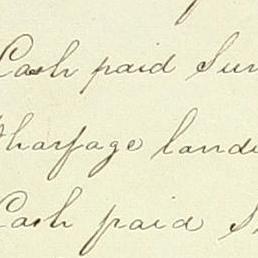 Cash paid Sun
Wharfage landi
Cash paid S